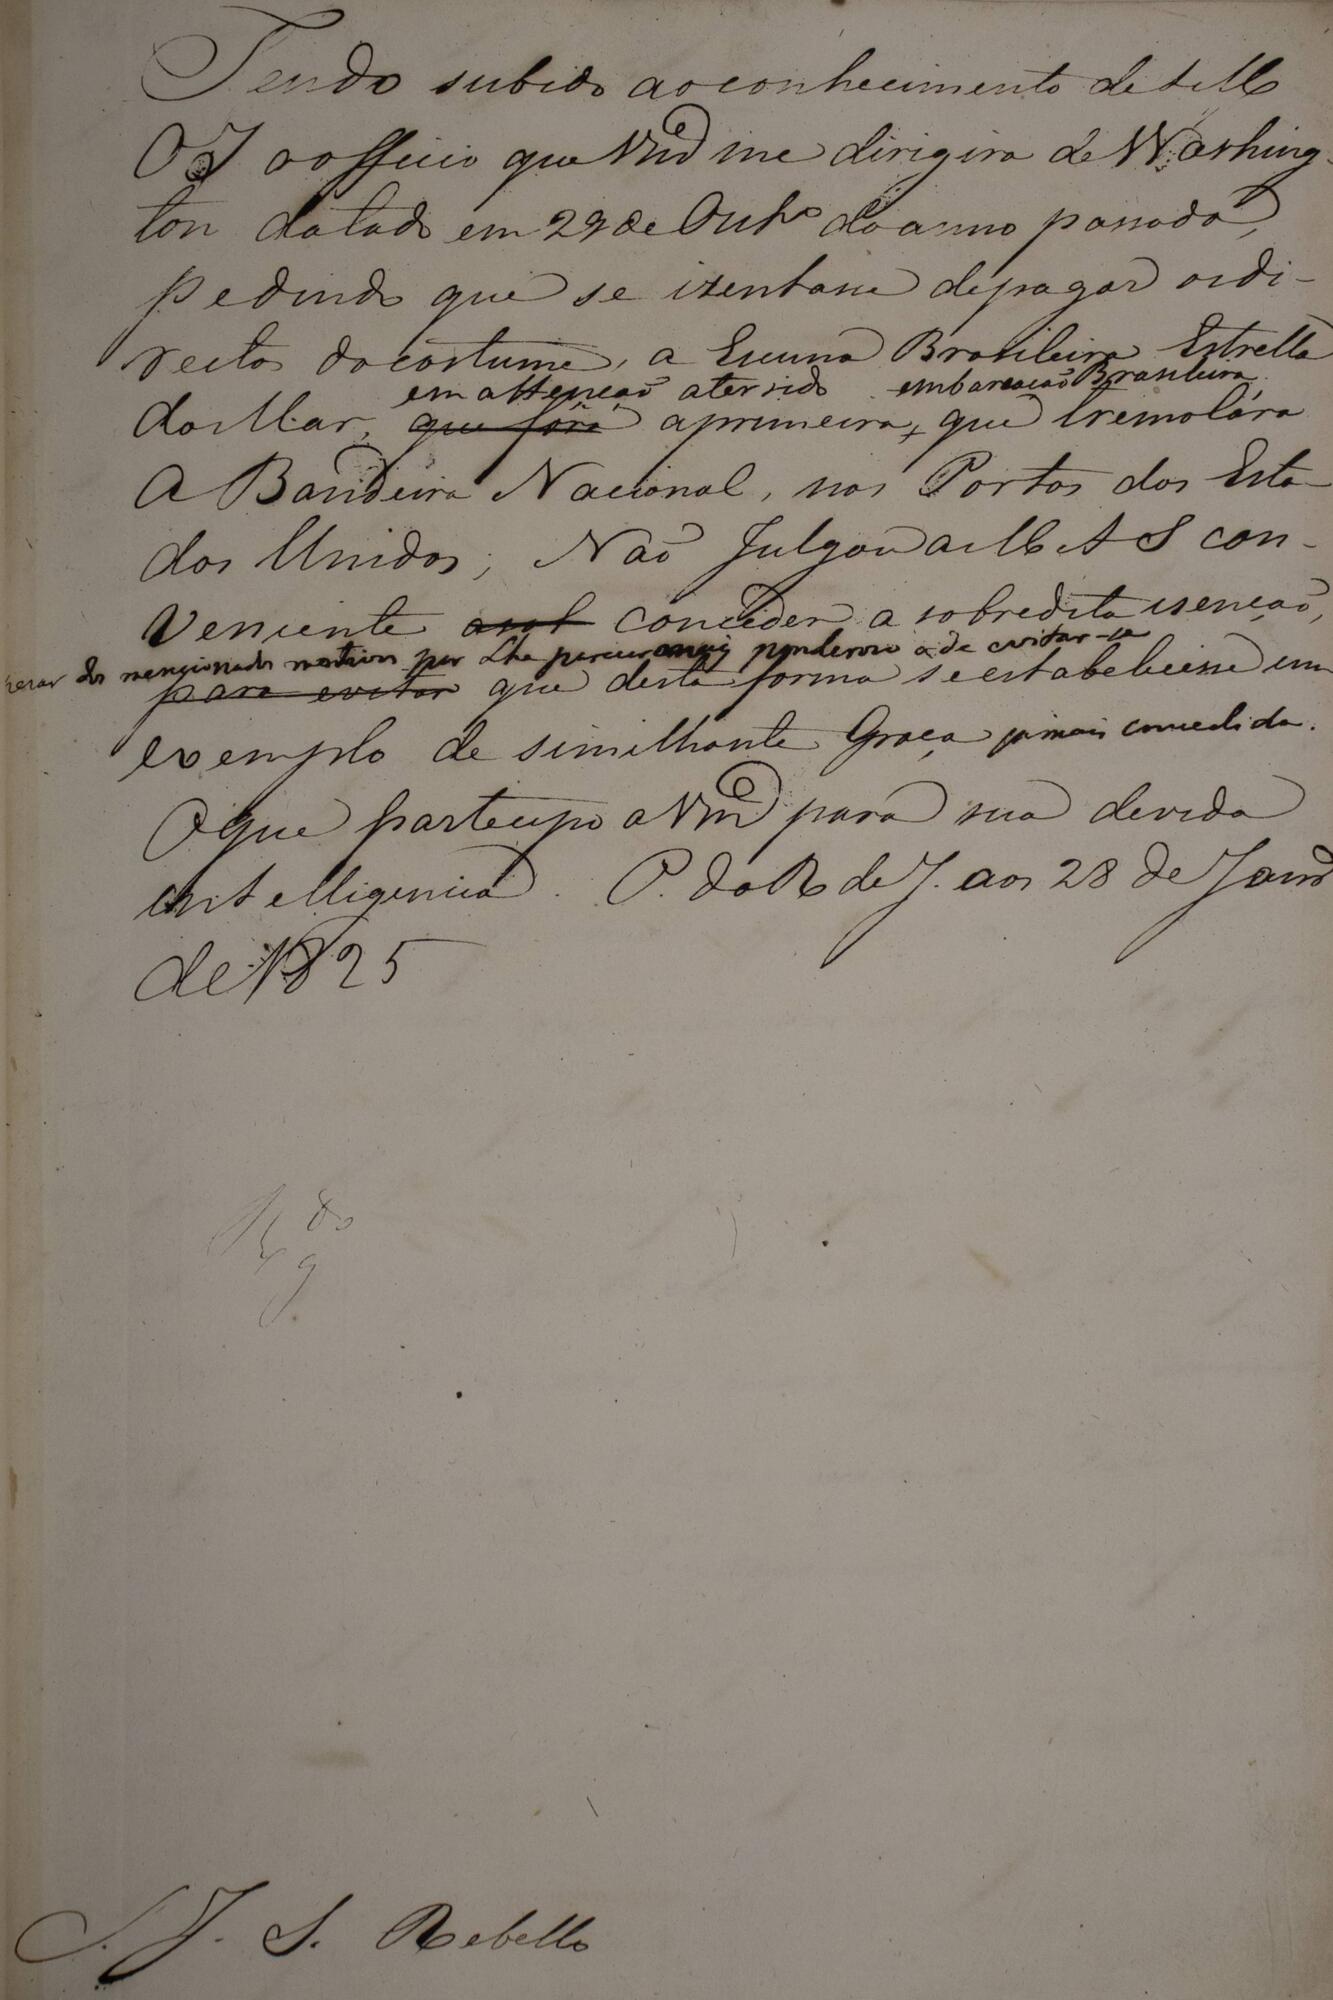 Tendo subido ao conhecimento de S M
O I o officio que Vmce me dirigira de Washing-
ton datado em 29 de Outbo do anno passado,
pedindo que se izentasse de pagar os di-
reitos do costume, a Escuna Brasileira Estrella
em attenção a ter sido embarcação Brasileira
do Mar, que fôra a primeira, que tremolára
A Bandeira Nacional, nos Portos dos Esta-
dos Unidos; Não Julgou a M A S con-
veniente conceder a sobredita isenção,
pezar dos mencionados motivos por Lhe parecer mais ponderoso o de evitar-se
para evitar que desta forma se estabelecesse um
exemplo de similhante Graça jamais concedida.
O que participo a Vmce para sua devida
intelligencia. P. do R. de J. aos 28 de Janro
de 1825
Rdo
J. S. Rebello